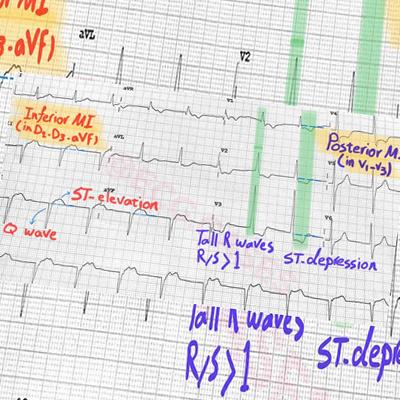 MI
3.aVf)
aVL
V2
aVR
V1
Inferior MI
(in D2-D3-aVf)
aVL
V2
Posterior M
(in V1-V3)
ST-elevation
aVF
V3
V6
Q wave
Tall R waves
R/S>1
ST.depression
Tall R waves
R/S>1
ST.depre